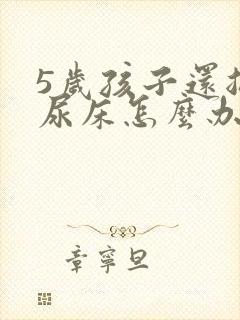 5歲孩子還
尿床怎麼办
章寧旦